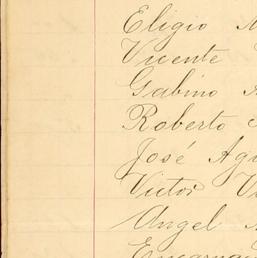 Eligio
Vicente
Gabino
Roberto
José Agu
Victor V
Angel